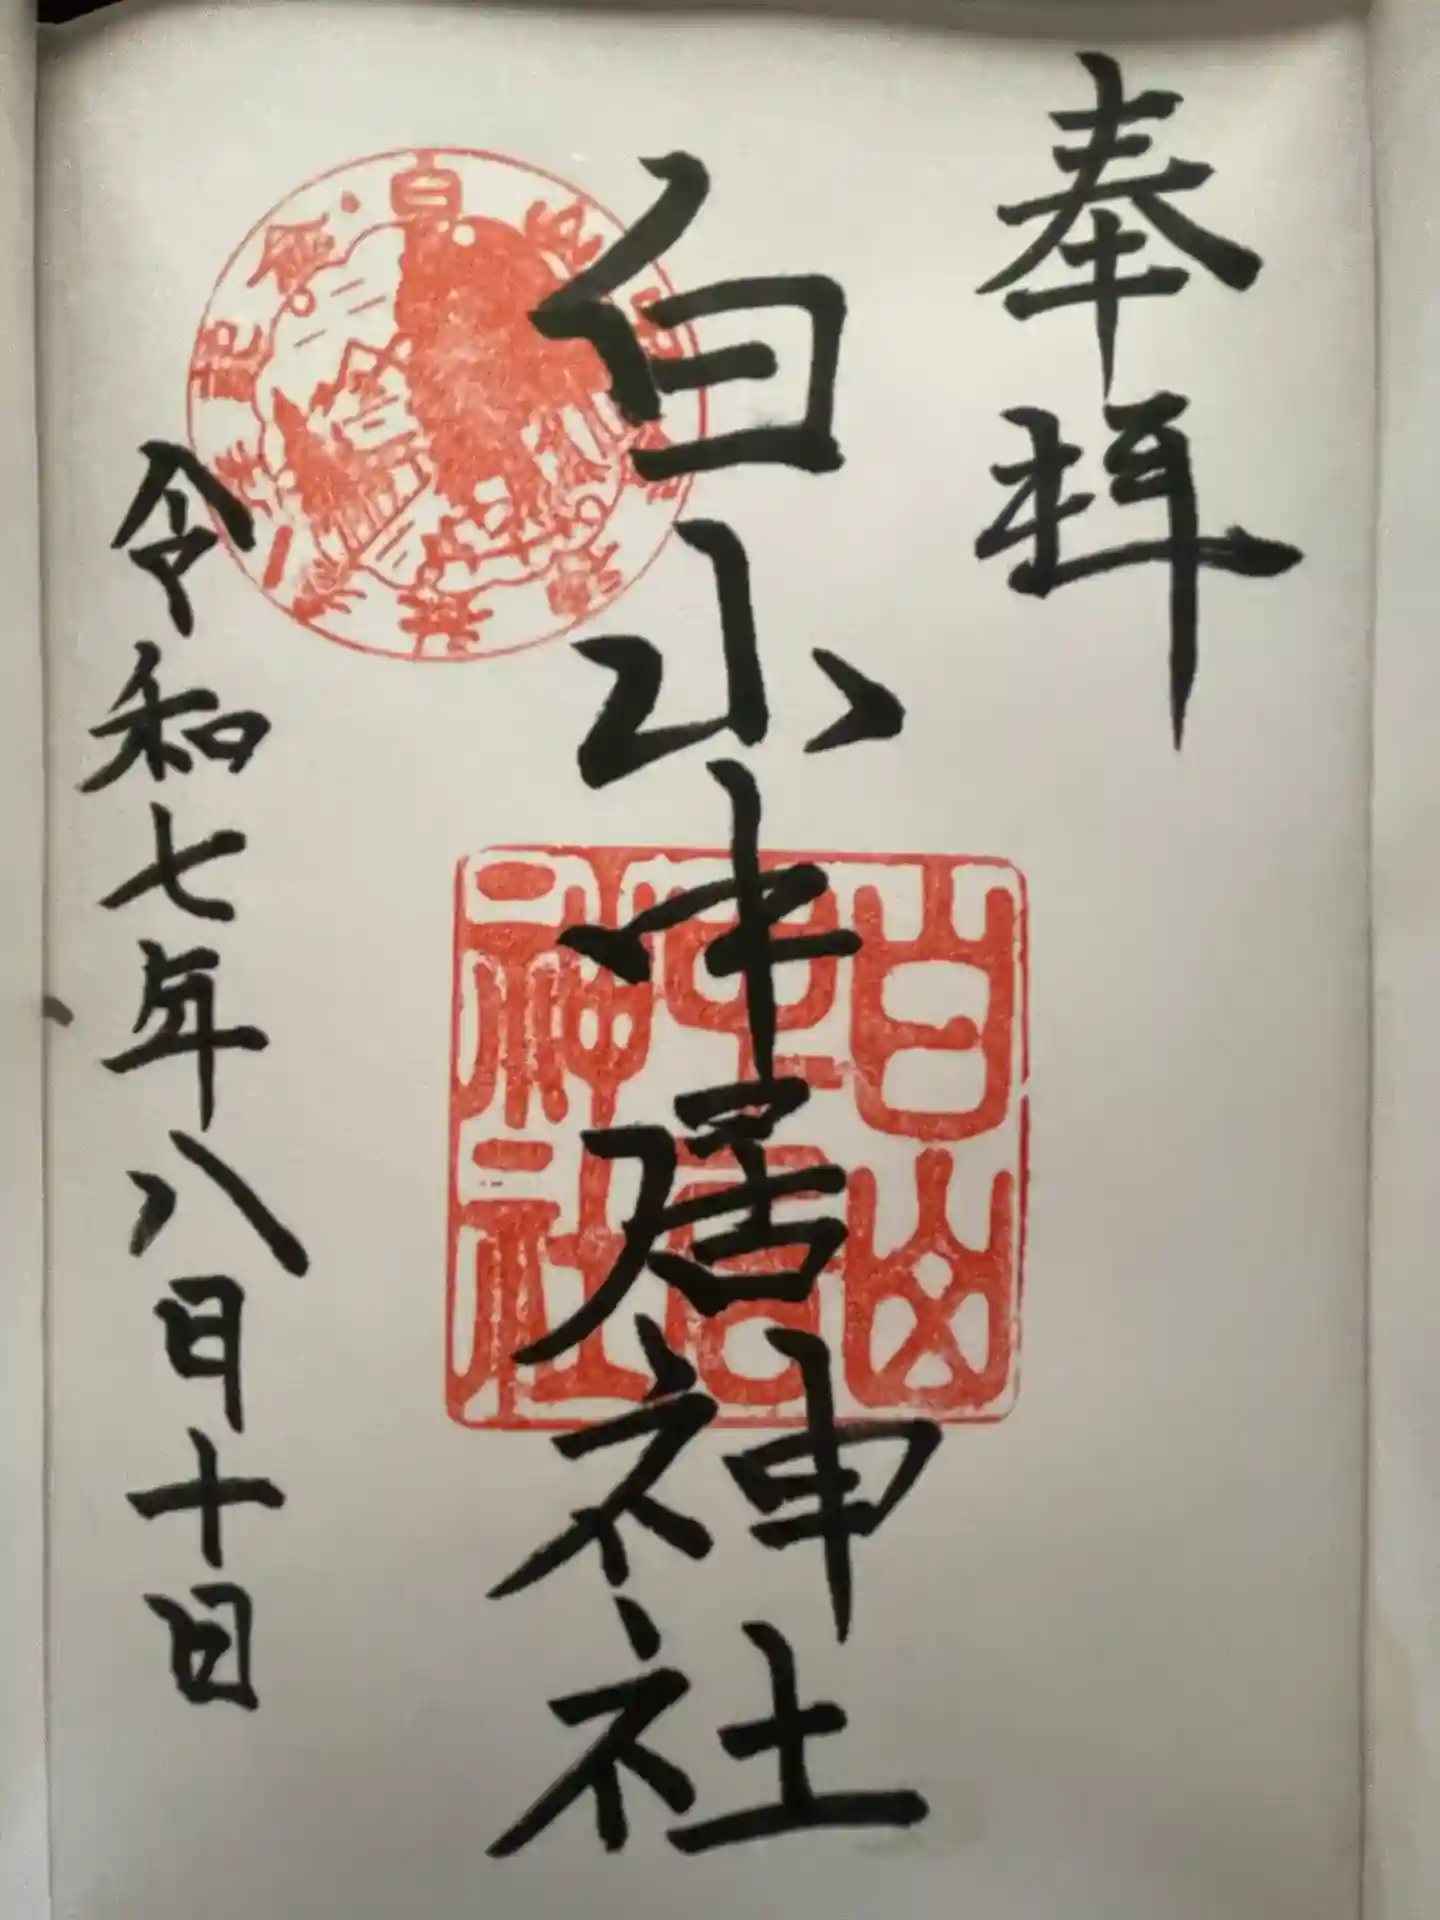 奉拝
白山中居神社
令和七年八月十日
白山
中居
神社